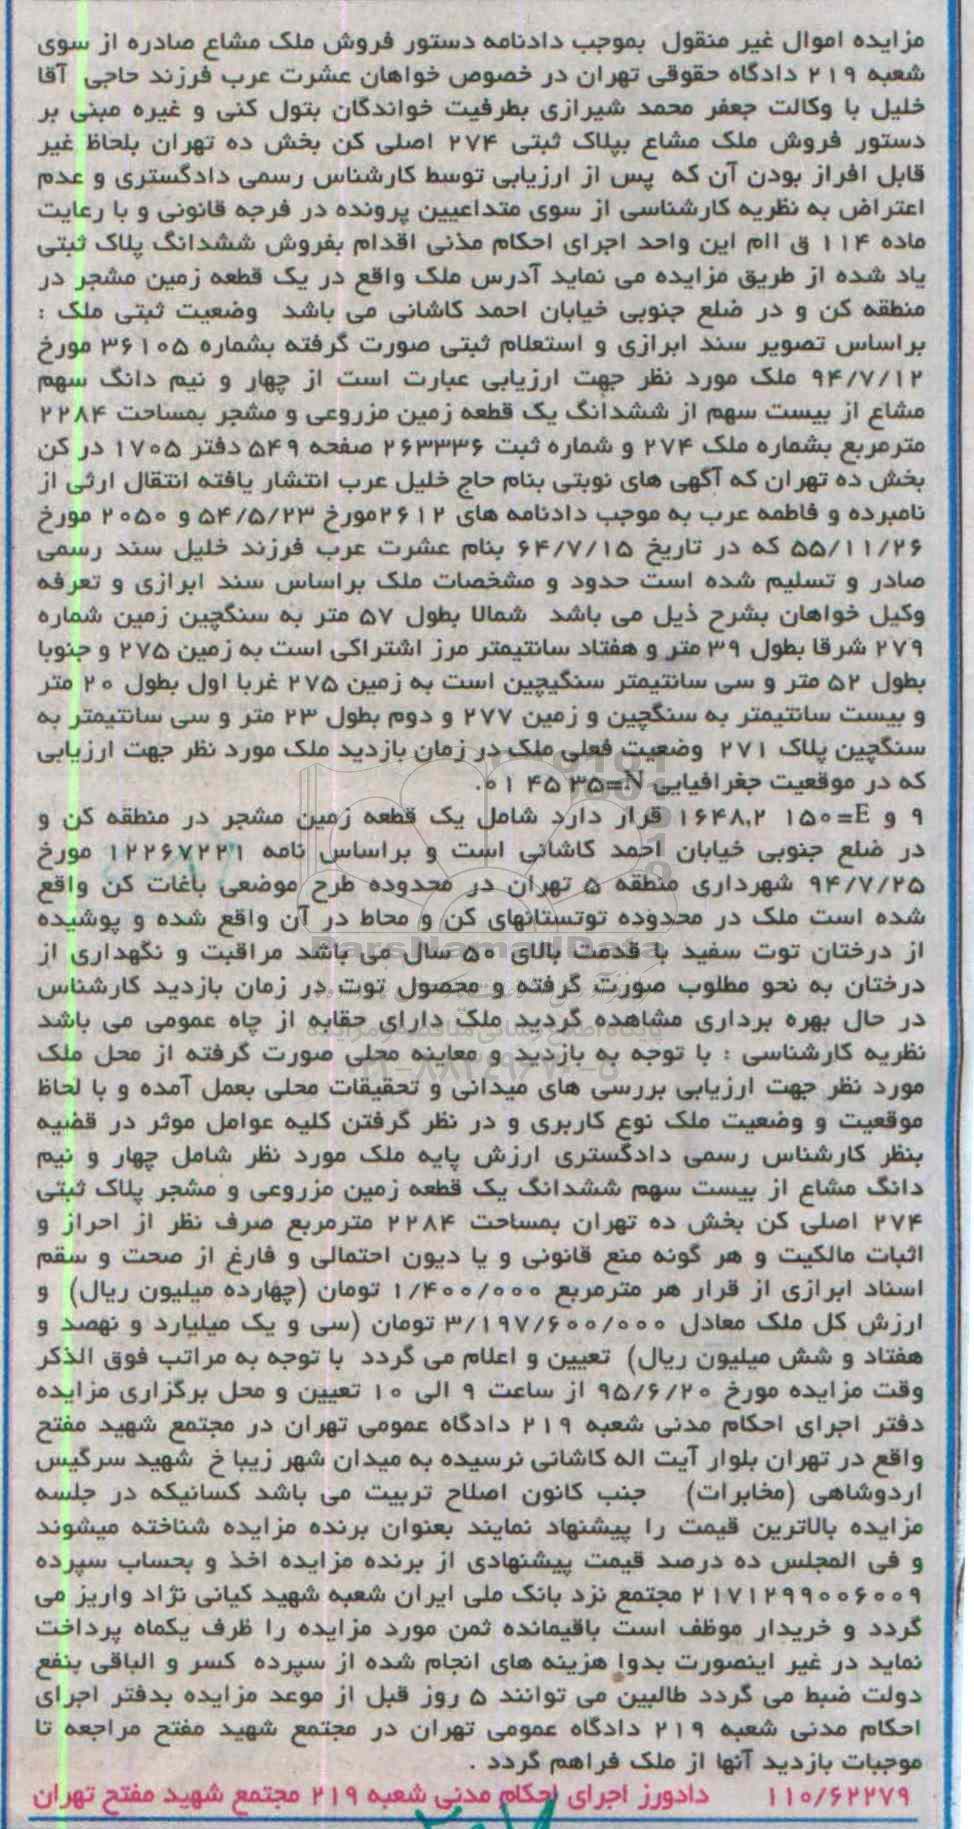 مزایده اموال غیر منقول بموجب دادنامه دستور فروش ملک مشاع صادره از سوی
شعبه ۲۱۹ دادگاه حقوقی تهران در خصوص خواهان عشرت عرب فرزند حاجی آقا
خلیل با وکالت جعفر محمد شیرازی بطرفیت خواندگان بتول کنی و غیره مبنی بر
دستور فروش ملک مشاع بپلاک ثبتی ۲۷۴ اصلی کن بخش ده تهران بلحاظ غیر
قابل افراز بودن آن که پس از ارزیابی توسط کارشناس رسمی دادگستری و عدم
اعتراض به نظریه کارشناسی از سوی متداعیین پرونده در فرجه قانونی و با رعایت
ماده ۱۱۴ ق اام این واحد اجرای احکام مذنی اقدام بفروش ششدانگ پلاک ثبتی
یاد شده از طریق مزایده می نماید آدرس ملک واقع در یک قطعه زمین مشجر در
منطقه کن و در ضلع جنوبی خیابان احمد کاشانی می باشد وضعیت ثبتی ملک :
براساس تصویر سند ابرازی و استعلام ثبتی صورت گرفته بشماره ۳۶۱۰۵ مورخ
۹۴/۷/۱۲ ملک مورد نظر جهت ارزیابی عبارت است از چهار و نیم دانگ سهم
مشاع از بیست سهم از ششدانگ یک قطعه زمین مزروعی و مشجر بمساحت ۲۲۸۴
مترمربع بشماره ملک ۲۷۴ و شماره ثبت ۲۶۳۳۳۶ صفحه ۵۴۹ دفتر ۱۷۰۵ در کن
بخش ده تهران که آگهی های نوبتی بنام حاج خلیل عرب انتشار یافته انتقال ارثی از
نامبرده و فاطمه عرب به موجب دادنامه های ۲۶۱۲مورخ ۵۴/۵/۲۳ و ۲۰۵۰ مورخ
۵۵/۱۱/۲۶ که در تاریخ ۶۴/۷/۱۵ بنام عشرت عرب فرزند خلیل سند رسمی
صادر و تسلیم شده است حدود و مشخصات ملک براساس سند ابرازی و تعرفه
وکیل خواهان بشرح ذیل می باشد شمالا بطول ۵۷ متر به سنگچین زمین شماره
۲۷۹ شرقا بطول ۳۹ متر و هفتاد سانتیمتر مرز اشتراکی است به زمین ۲۷۵ و جنوبا
بطول ۵۲ متر و سی سانتیمتر سنگیچین است به زمین ۲۷۵ غربا اول بطول ۲۰ متر
و بیست سانتیمتر به سنگچین و زمین ۲۷۷ و دوم بطول ۲۳ متر و سی سانتیمتر به
سنگچین پلاک ۲۷۱ وضعیت فعلی ملک در زمان بازدید ملک مورد نظر جهت ارزیابی
که در موقعیت جغرافیایی N=۳۵ ۴۵ ۰۱.
۹ و E=۱۵۰ ۱۶۴۸,۲ قرار دارد شامل یک قطعه زمین مشجر در منطقه کن و
در ضلع جنوبی خیابان احمد کاشانی است و براساس نامه ۱۲۲۶۷۲۲۱ مورخ
۹۴/۷/۲۵ شهرداری منطقه ۵ تهران در محدوده طرح موضعی باغات کن واقع
شده است ملک در محدوده توتستانهای کن و محاط در آن واقع شده و پوشیده
از درختان توت سفید با قدمت بالای ۵۰ سال می باشد مراقبت و نگهداری از
درختان به نحو مطلوب صورت گرفته و محصول توت در زمان بازدید کارشناس
در حال بهره برداری مشاهده گردید ملک دارای حقابه از چاه عمومی می باشد
نظریه کارشناسی : با توجه به بازدید و معاینه محلی صورت گرفته از محل ملک
مورد نظر جهت ارزیابی بررسی های میدانی و تحقیقات محلی بعمل آمده و با لحاظ
موقعیت و وضعیت ملک نوع کاربری و در نظر گرفتن کلیه عوامل موثر در قضیه
بنظر کارشناس رسمی دادگستری ارزش پایه ملک مورد نظر شامل چهار و نیم
دانگ مشاع از بیست سهم ششدانگ یک قطعه زمین مزروعی و مشجر پلاک ثبتی
۲۷۴ اصلی کن بخش ده تهران بمساحت ۲۲۸۴ مترمربع صرف نظر از احراز و
اثبات مالکیت و هر گونه منع قانونی و یا دیون احتمالی و فارغ از صحت و سقم
اسناد ابرازی از قرار هر مترمربع ۱/۴۰۰/۰۰۰ تومان (چهارده میلیون ریال) و
ارزش کل ملک معادل ۳/۱۹۷/۶۰۰/۰۰۰ تومان (سی و یک میلیارد و نهصد و
هفتاد و شش میلیون ریال) تعیین و اعلام می گردد با توجه به مراتب فوق الذکر
وقت مزایده مورخ ۹۵/۶/۲۰ از ساعت ۹ الی ۱۰ تعیین و محل برگزاری مزایده
دفتر اجرای احکام مدنی شعبه ۲۱۹ دادگاه عمومی تهران در مجتمع شهید مفتح
واقع در تهران بلوار آیت اله کاشانی نرسیده به میدان شهر زیبا خ شهید سرگیس
اردوشاهی (مخابرات) جنب کانون اصلاح تربیت می باشد کسانیکه در جلسه
مزایده بالاترین قیمت را پیشنهاد نمایند بعنوان برنده مزایده شناخته میشوند
و فی المجلس ده درصد قیمت پیشنهادی از برنده مزایده اخذ و بحساب سپرده
۲۱۷۱۲۹۹۰۰۶۰۰۹ مجتمع نزد بانک ملی ایران شعبه شهید کیانی نژاد واریز می
گردد و خریدار موظف است باقیمانده ثمن مورد مزایده را ظرف یکماه پرداخت
نماید در غیر اینصورت بدوا هزینه های انجام شده از سپرده کسر و الباقی بنفع
دولت ضبط می گردد طالبین می توانند ۵ روز قبل از موعد مزایده بدفتر اجرای
احکام مدنی شعبه ۲۱۹ دادگاه عمومی تهران در مجتمع شهید مفتح مراجعه تا
موجبات بازدید آنها از ملک فراهم گردد .
۱۱۰/۶۲۲۷۹ دادورز اجرای احکام مدنی شعبه ۲۱۹ مجتمع شهید مفتح تهران